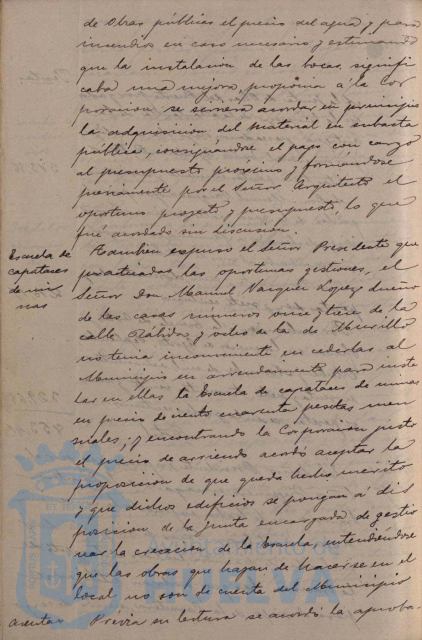 de Obras públicas el precio del agua y para
incendios en caso necesario y estimando
que la instalación de las bocas, signifi
caba una mejora, proponia á la Cor
poracion se sirviera acordar en principio
la adquisicion del material en subasta
pública, consignándose el pago con cargo
al presupuesto próximo y formándose
previamente por el Señor Arquitecto el
oportuno proyecto y presupuesto, lo que
fué acordado sin discusion.
Escuela de
capataces
de mi
nas
Tambien expuso el Señor Presidente que
practicadas las oportunas gestiones, el
Señor Don Manuel Vazquez Lopez dueño
de las casas números once y trece de la
calle Rábida y ocho de la de Murillo
no tenia inconveniente en cederlas al
Municipio en arrendamiento para insta
lar en ellas la Escuela de capataces de minas
en precio de ciento cuarenta pesetas men
suales; y encontrando la Corporacion justo
el precio de arriendo acordó aceptar la
proposicion de que queda hecho mérito
y que dichos edificios se pongan á dis
posicion de la Junta encargada de gestio
nar la creacion de la Escuela, entendiéndose
que las obras que hayan de hacerse en el
local no son de cuenta del Municipio
Cuentas
Prévia su lectura se acordó la aproba-
AYUNTAMIENTO DE
HUELVA